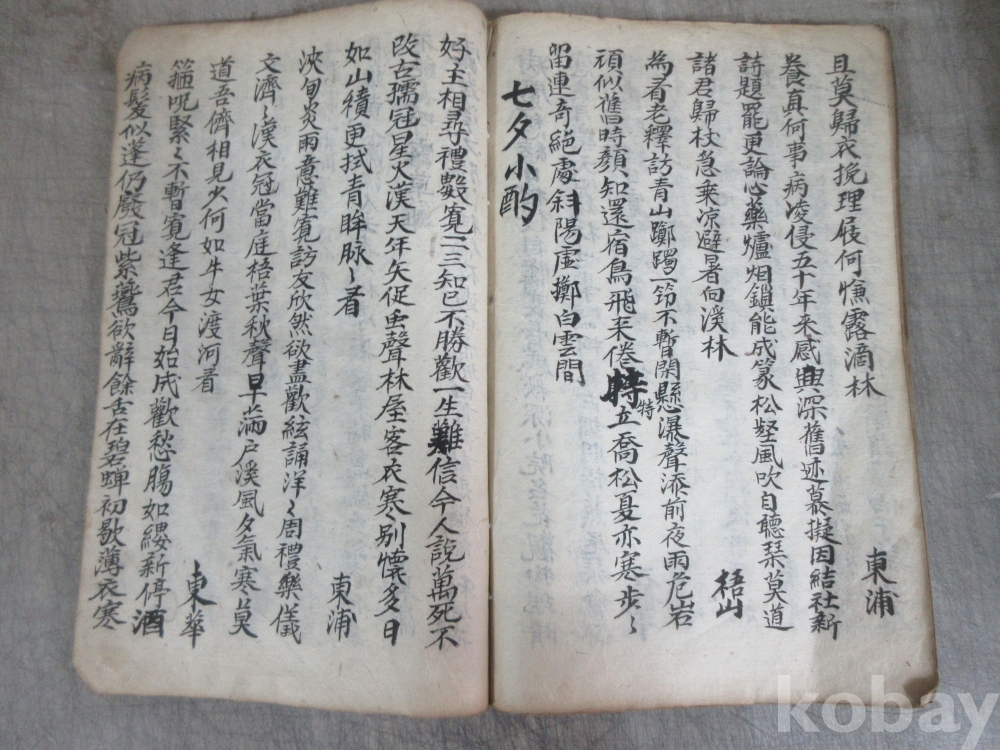 且莫歸衣挽理屐何憔露滴林
東浦
養真何事病凌侵五十年來感興深舊迹慕擬因結社新
詩題罷更論心藥爐烟鎖能成篆松壑風吹自聽琹莫道
諸君歸杖急乘凉避暑向溪林
梧山
為看老釋訪青山躑躅一笻不暫閑懸瀑聲添前夜雨危岩
頑似舊時顔知還宿鳥飛来倦特立喬松夏亦寒步〻
特
留連奇絕處斜陽虛擲白雲間
七夕小酌
好主相尋禮數寬二三知己不勝歡一生難信今人說萬死不
改古孺冠星火漢天年矢促虫聲林屋客衣寒別懷多日
如山積更拭青眸脉〻看
東浦
浹旬炎雨意難寬訪友欣然欲盡歡絃誦洋〻周禮樂儀
文濟〻漢衣冠當庭梧葉秋聲早滿戶溪風夕氣寒莫
道吾儕相見少何如牛女渡河看
東華
箍呪緊〻不暫寬逢君今日始成歡愁膓如纓新停酒
病髮似蓬仍廢冠紫鷰欲辭餘舌在碧蟬初歇薄衣寒
kobay